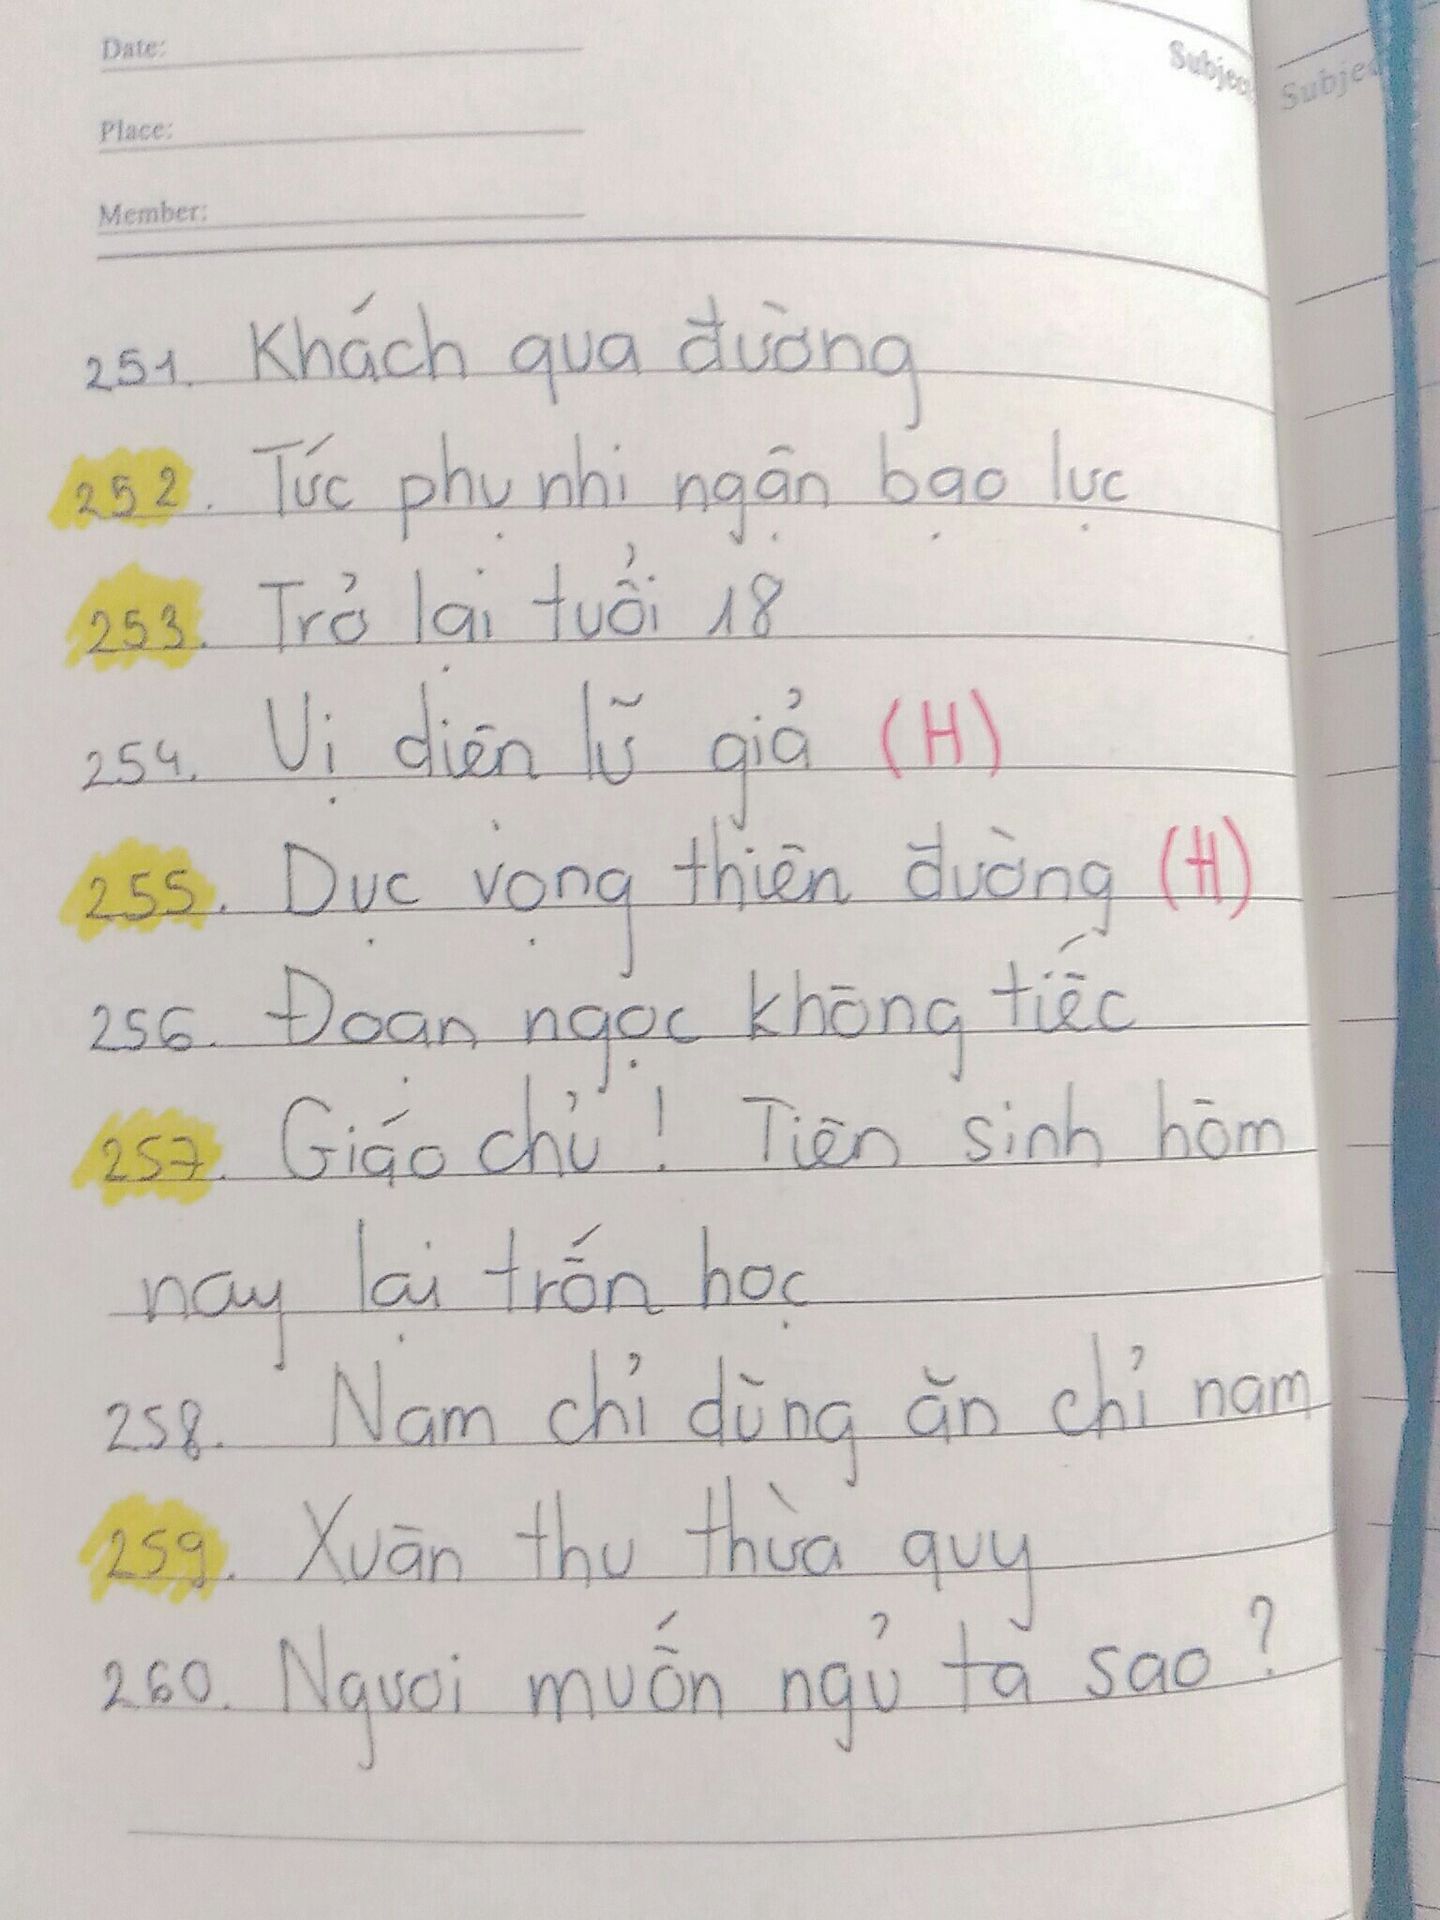 Date:
Subject
Subjec
Place:
Member:
251. Khách qua đường
252. Tức phụ nhi ngận bạo lực
253. Trở lại tuổi 18
254. Vị diên lữ giả (H)
255. Dục vọng thiên đường (H)
256. Đoạn ngọc không tiếc
257. Giáo chủ! Tiên sinh hôm
nay lại trốn học
258. Nam chỉ dùng ăn chỉ nam
259. Xuân thu thừa quy
260. Ngươi muốn ngủ ta sao?